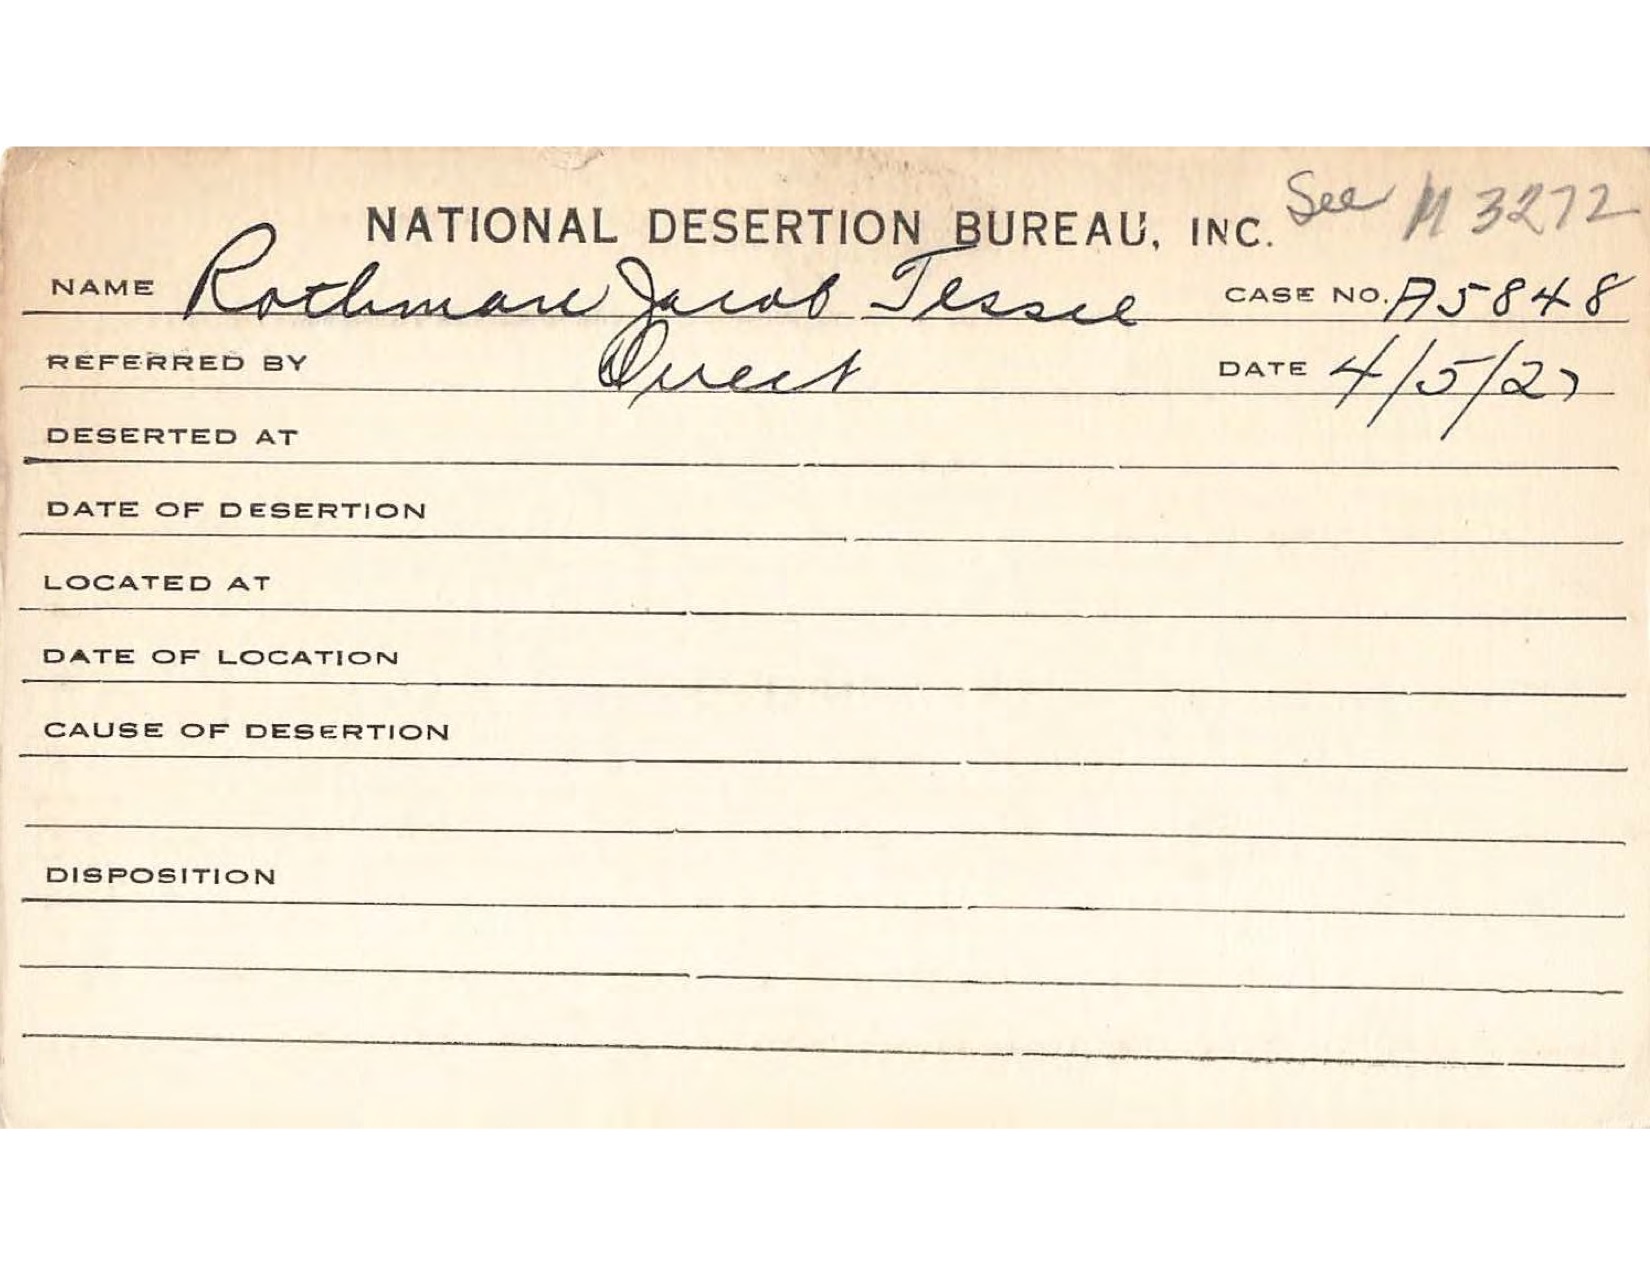 See M 3272
NATIONAL DESERTION BUREAU, INC.
NAME Rothman Jacob Tessie CASE NO. A5848
REFERRED BY Direct DATE 4/5/27
DESERTED AT
DATE OF DESERTION
LOCATED AT
DATE OF LOCATION
CAUSE OF DESERTION
DISPOSITION